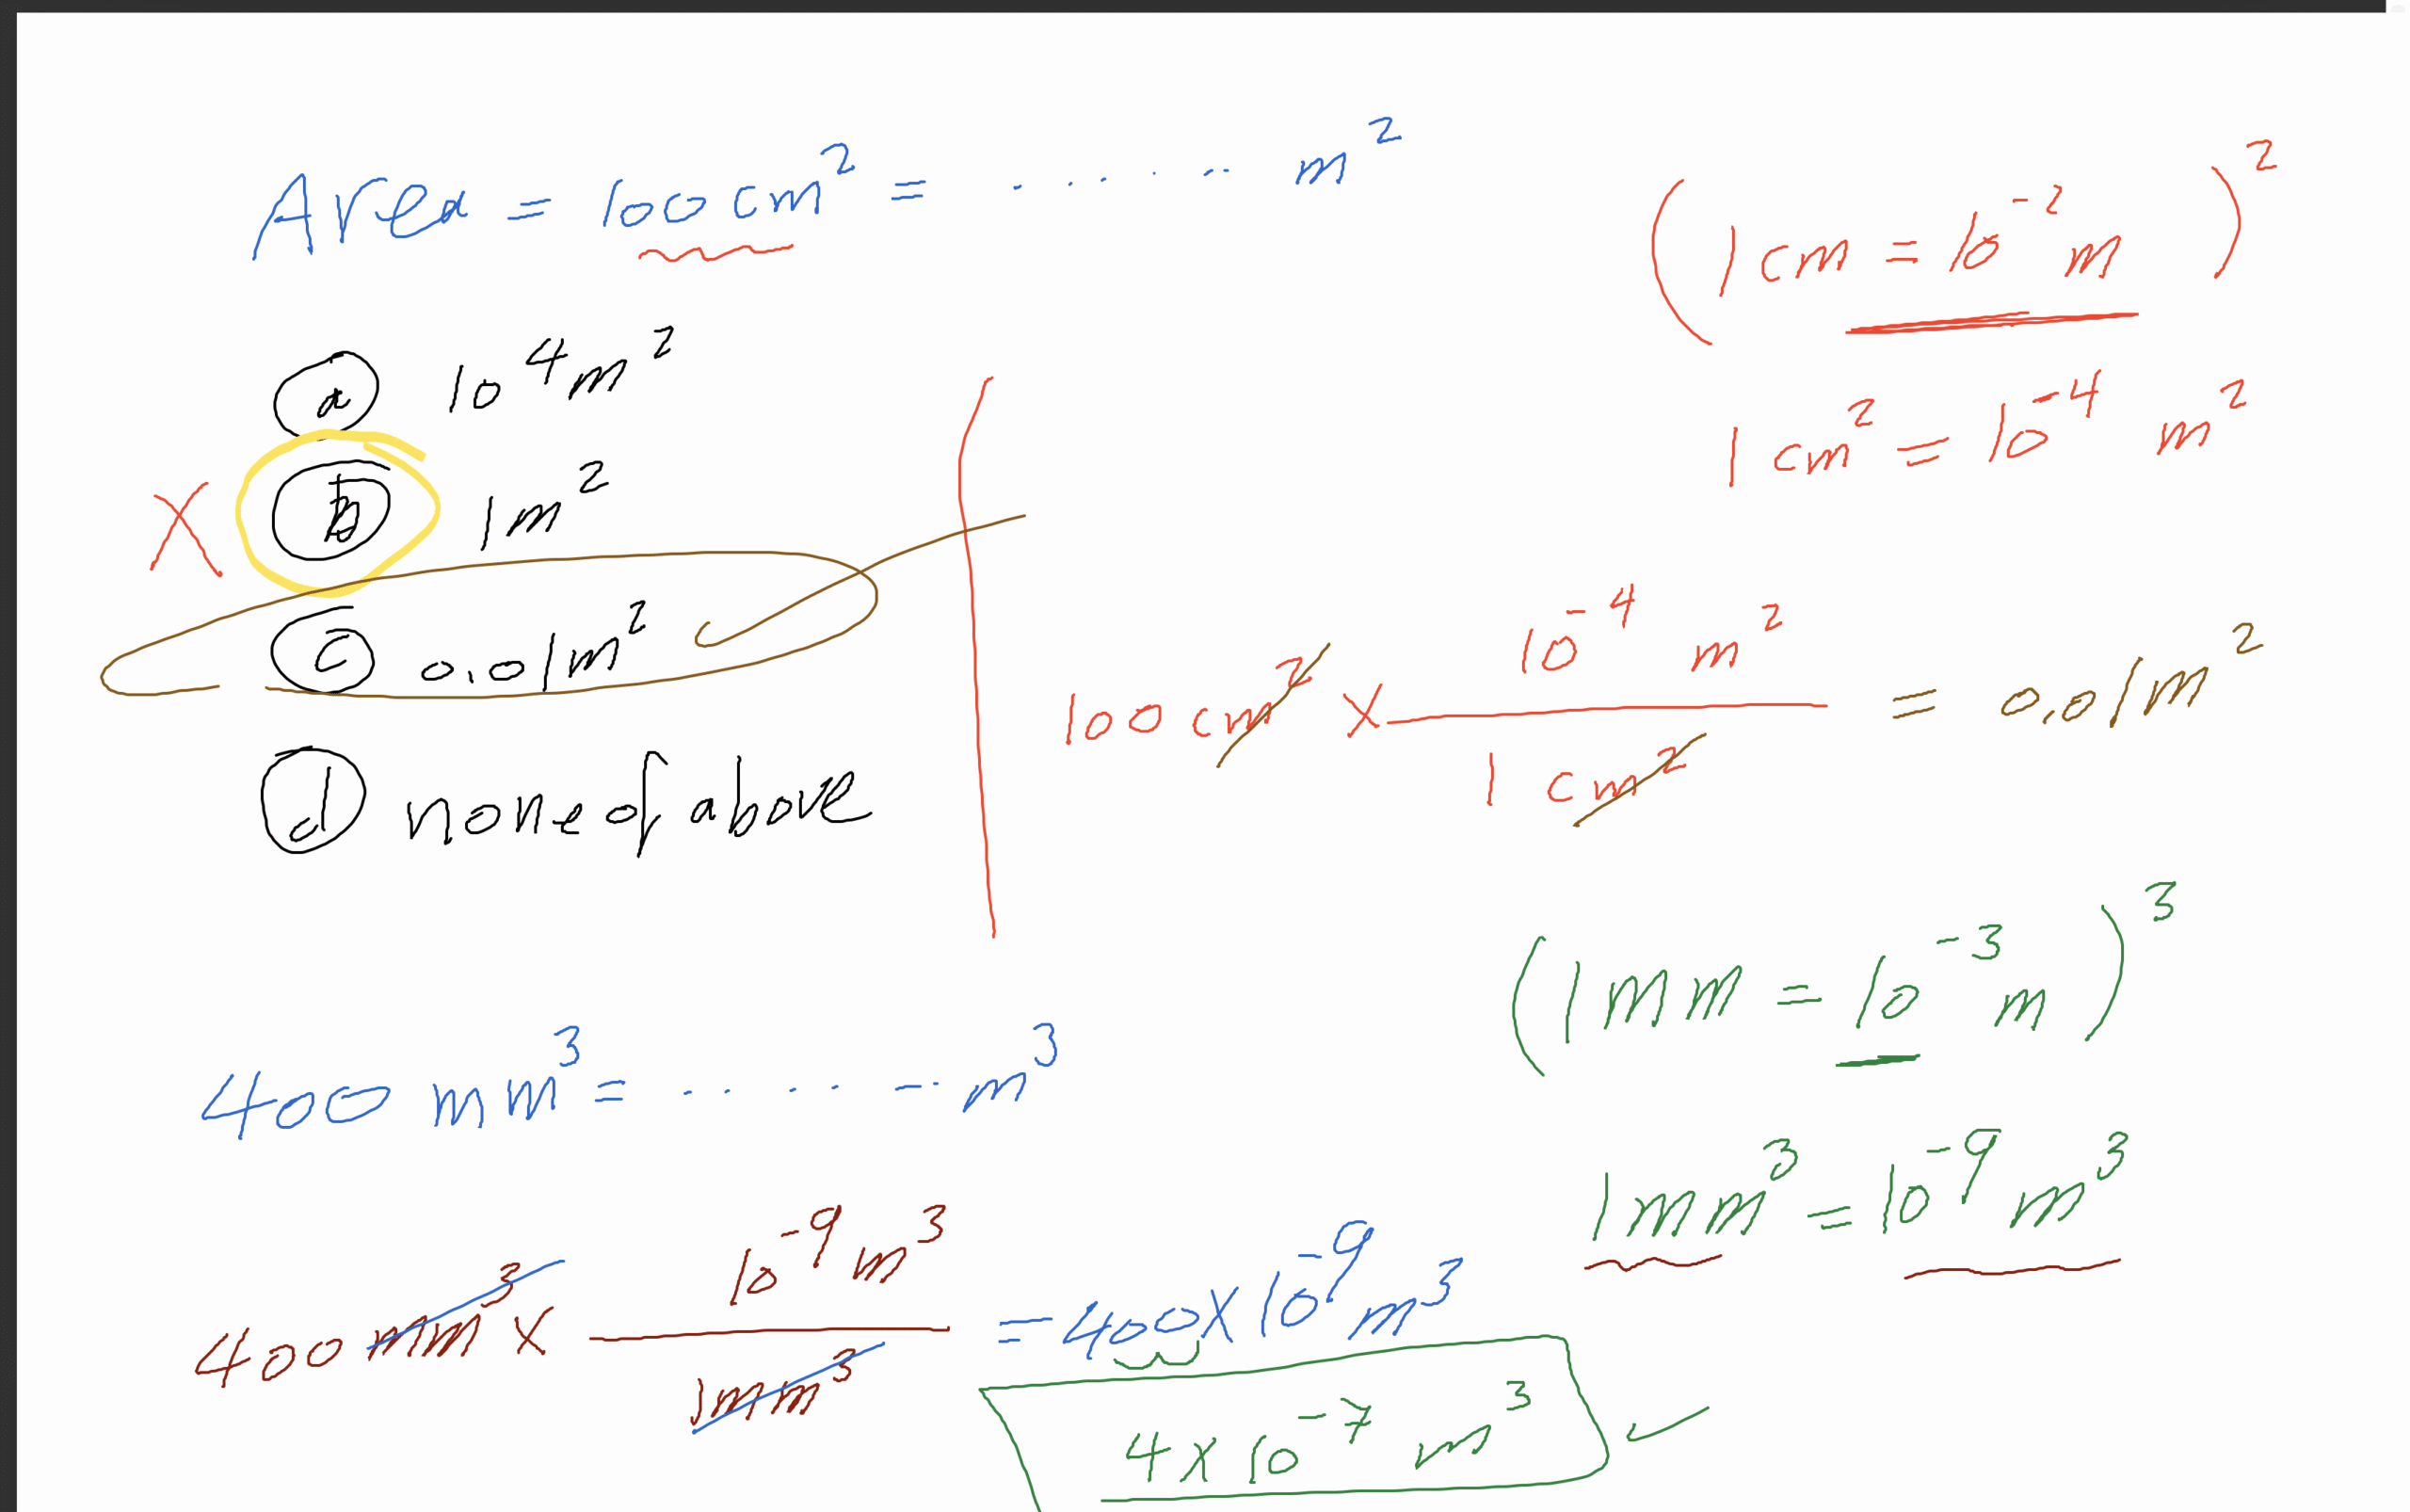 Area = 100 cm² = ...... m²
(1 cm = 10⁻² m)²
1 cm² = 10⁻⁴ m²
a 10⁴ m²
X b 1 m²
c 0.01 m²
d none of above
100 cm² × 10⁻⁴ m² / 1 cm² = 0.01 m²
(1 mm = 10⁻³ m)³
1 mm³ = 10⁻⁹ m³
400 mm³ = ...... m³
400 mm³ × 10⁻⁹ m³ / 1 mm³ = 400 × 10⁻⁹ m³
4 × 10⁻⁷ m³ ✓